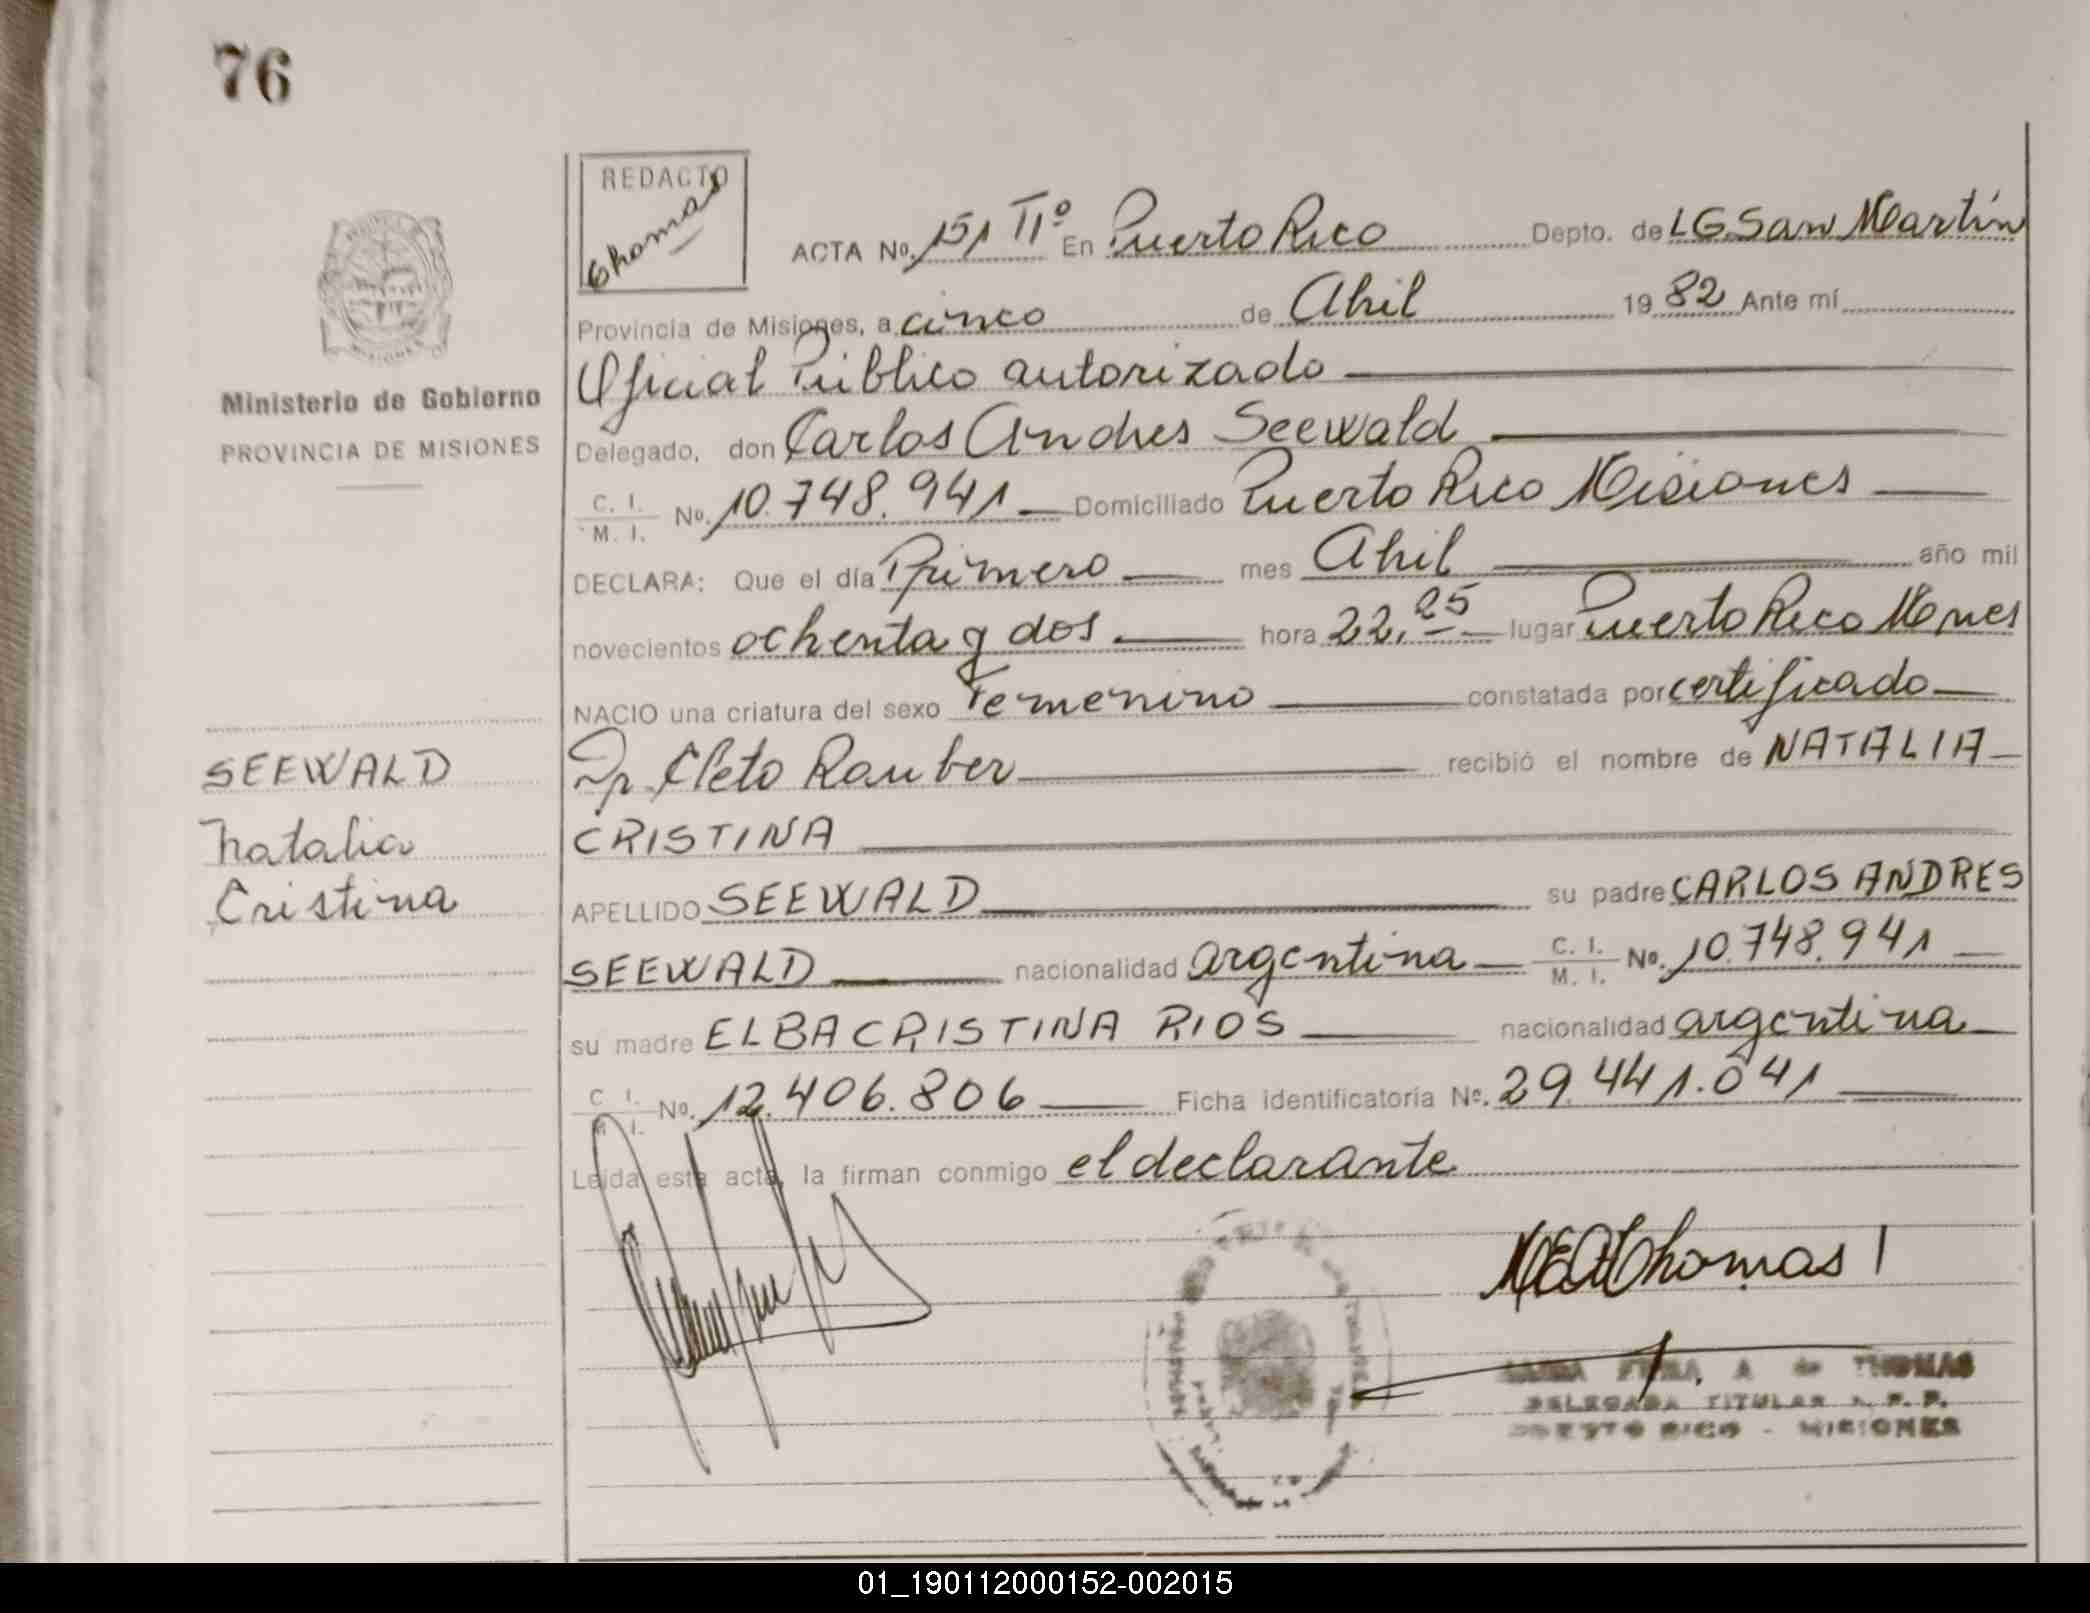 76
REDACTO
Thomas
ACTA No. 151 TIº En Puerto Rico Depto. de LG San Martín
Provincia de Misiones, a cinco de Abril 1982 Ante mí
Oficial Público autorizado
Delegado, don Carlos Andres Seewald
C. I. M. I. No. 10.748.941 Domiciliado Puerto Rico Misiones
DECLARA: Que el día Primero mes Abril año mil
novecientos ochenta y dos hora 22,25 lugar Puerto Rico Mones
NACIO una criatura del sexo Femenino constatada por certificado
Dr. Cleto Rauber recibió el nombre de NATALIA
CRISTINA
APELLIDO SEEWALD su padre CARLOS ANDRES
SEEWALD nacionalidad argentina C. I. M. I. No. 10.748.941
su madre ELBA CRISTINA RIOS nacionalidad argentina
C. I. M. I. No. 12.406.806 Ficha identificatoria No. 29.441.041
Leida esta acta, la firman conmigo el declarante
MISIONES
Ministerio de Gobierno
PROVINCIA DE MISIONES
SEEWALD
Natalia
Cristina
Thomas
A. de THOMAS
DELEGADA TITULAR R. P. P.
PUERTO RICO - MISIONES
01_190112000152-002015